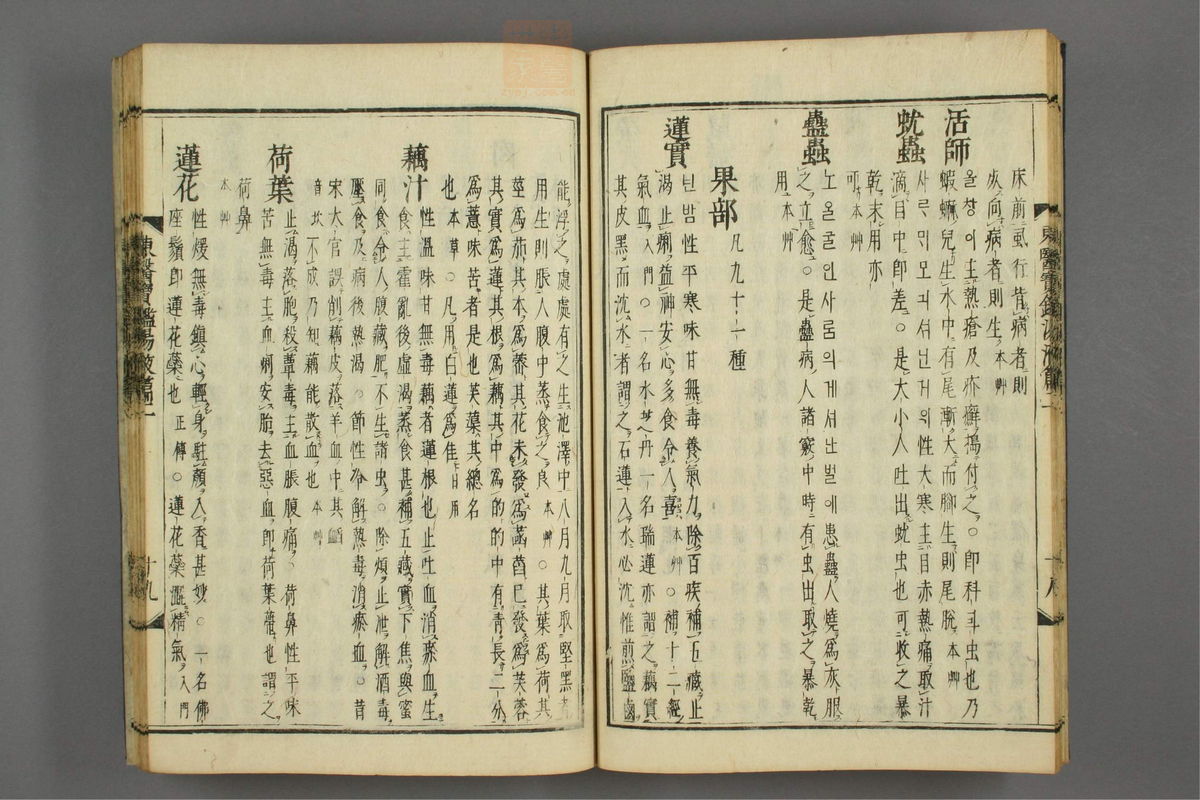 床前虱行背病者則
灰向病者則生本艸
活師
올창이主熱瘡及疥癬搗付之○卽科斗虫也乃
蝦蟆兒生水中有尾漸大而脚生則尾脫本艸
蚘蟲
사르믹모긔셔난거위性大寒主目赤熱痛取汁
滴目中卽差○是大小人吐出蚘虫也可收之暴
乾末用亦
可本艸
蠱蟲
노올굴인사룸의게셔난벌에患蠱人燒爲灰服
之立愈○是蠱病人諸竅中時有虫出取之暴乾
用本艸
果部 凡九十一種
蓮實
년밤性平寒味甘無毒養氣力除百疾補五藏止
渴止痢益神安心多食令人喜本艸○補十二經
氣血入門○一名水芝丹一名瑞蓮亦謂之藕實
其皮黑而沈水者謂之石蓮入水必沈惟煎鹽鹵
能浮之處處有之生池澤中八月九月取堅黑者
用生則脹人腹中蒸食之良本艸○其葉爲荷其
莖爲茄其本爲蔤其花未發爲菡萏已發爲芙蓉
其實爲蓮其根爲藕其中爲的的中有靑長二分
爲薏味苦者是也芙蕖其總名
也本草○凡用白蓮爲佳日用
藕汁
性溫味甘無毒藕者蓮根也止吐血消瘀血生
食主霍亂後虛渴蒸食甚補五藏實下焦與蜜
同食令人腹藏肥不生諸虫○除煩止泄解酒毒
壓食及病後熱渴○節性冷解熱毒消瘀血○昔
宋太官誤削藕皮落羊血中其
音坎不成乃知藕能散血也本艸
荷葉
止渴落胞殺蕈毒主血脹腹痛○荷鼻性平味
苦無毒主血痢安胎去惡血卽荷葉蔕也謂之
荷鼻
本艸
蓮花
性煖無毒鎭心輕身駐顔入香甚妙○一名佛
座鬚卽蓮花蘂也正傳○蓮花蘂澁精氣入門